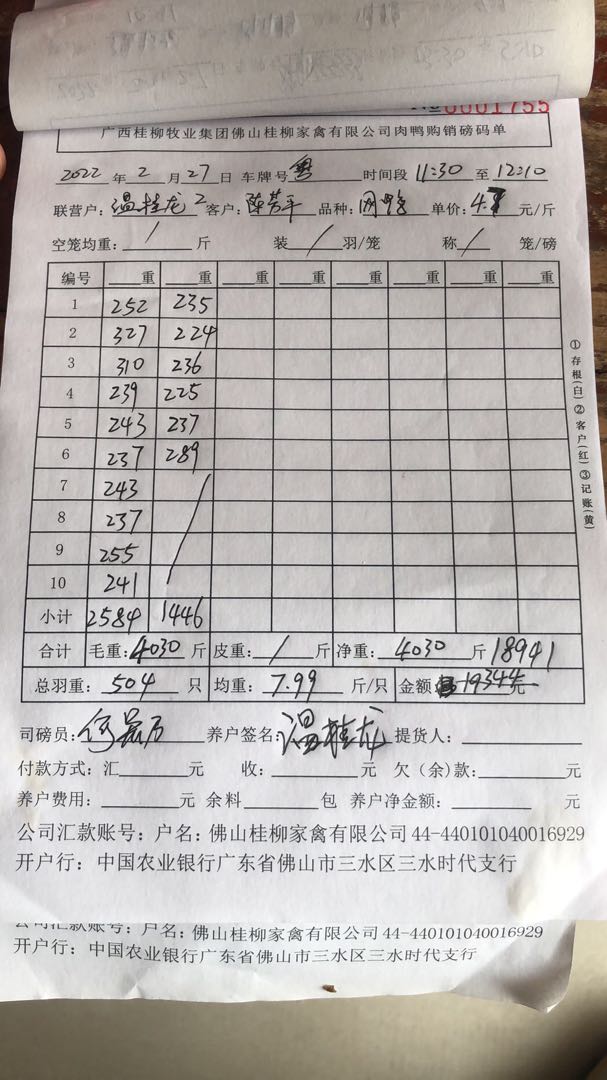 №0001755
广西桂柳牧业集团佛山桂柳家禽有限公司肉鸭购销磅码单
2022年2月27日 车牌号 粤 时间段 11:30 至 12:10
联营户：温桂龙2 客户：陈芳平 品种：肉鸭 单价：4.7元/斤
空笼均重：/斤 装/羽/笼 称/笼/磅
编号 重 重 重 重 重 重 重 重
1 252 235
2 327 224
3 310 236
4 239 225
5 243 237
6 237 289
7 243
8 237
9 255
10 241
小计 2584 1446
合计 毛重：4030斤 皮重：/斤 净重：4030斤 18941
总羽重：504只 均重：7.99斤/只 金额 19344元
①存根(白)②客户(红)③记账(黄)
司磅员： 养户签名：温桂龙 提货人：
付款方式：汇 元 收： 元 欠（余）款： 元
养户费用： 元 余料 包 养户净金额： 元
公司汇款账号：户名：佛山桂柳家禽有限公司 44-440101040016929
开户行：中国农业银行广东省佛山市三水区三水时代支行
公司汇款账号：户名：佛山桂柳家禽有限公司 44-440101040016929
开户行：中国农业银行广东省佛山市三水区三水时代支行